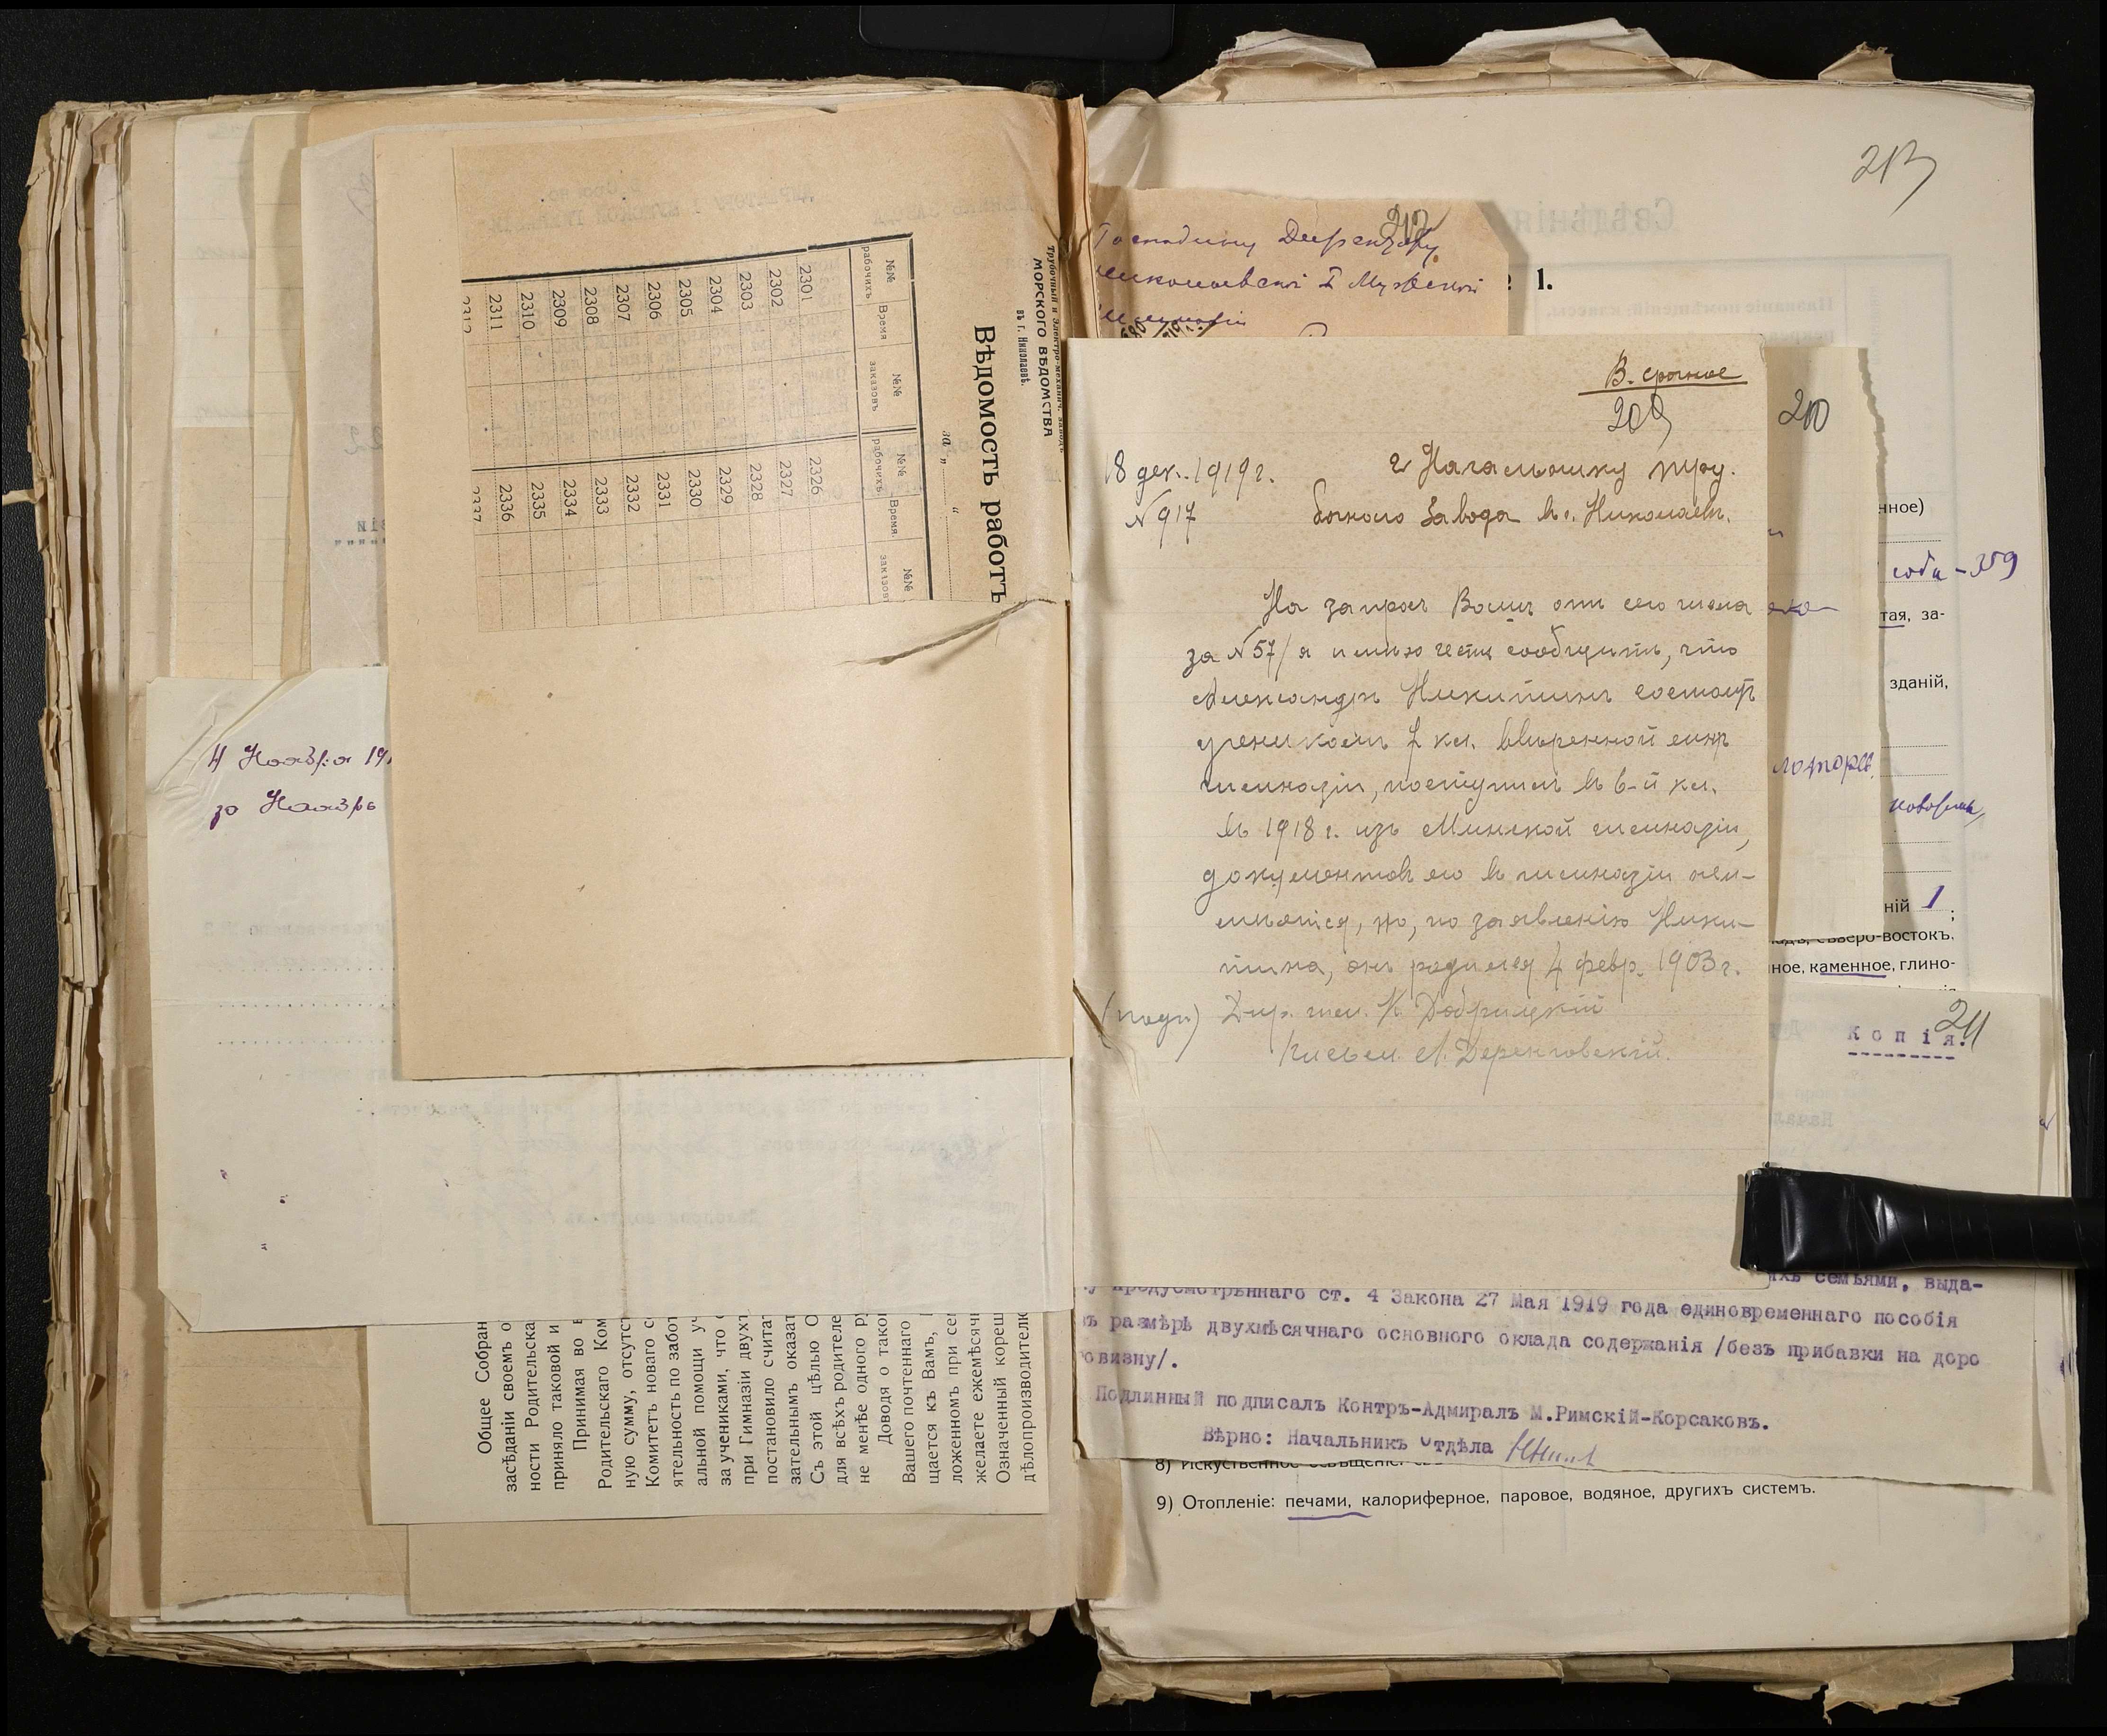 4 Ноября 191
за Ноябрь
Трубочный и Электро-механич. заводъ
МОРСКОГО ВѢДОМСТВА
въ г. Николаевѣ.
Вѣдомость работъ
за „ “
№№ рабочихъ Время №№ заказовъ №№ рабочихъ Время. №№ заказов
2301 2326
2302 2327
2303 2328
2304 2329
2305 2330
2306 2331
2307 2332
2308 2333
2309 2334
2310 2335
2311 2336
2312 2337
Общее Собран
засѣданіи своемъ о
ности Родительска
приняло таковой и
Принимая во в
Родительскаго Ком
ную сумму, отсутст
Комитетъ новаго с
ятельность по забот
альной помощи уч
за учениками, что
при Гимназіи двухъ
постановило считат
зательнымъ оказат
Съ этой цѣлью О
для всѣхъ родителе
не менѣе одного ру
Доводя о таков
Вашего почтеннаго
щается къ Вамъ,
ложенномъ при се
желаете ежемѣсячн
Означенный кореш
дѣлопроизводителю
213
212
Господину Директору
Николаевской I Мужской
Гимназіи
1.
В. срочное
209
210
18 дек. 1919 г.
N 917
г Начальнику тру-
бочного завода въ г. Николаевѣ.
На запросъ Вашъ отъ сего числа
за N 57/я имѣю честь сообщить, что
Александръ Никитинъ состоитъ
ученикомъ 7 кл. ввѣренной мнѣ
гимназіи, поступилъ въ 6-й кл.
въ 1918 г. изъ Минской гимназіи,
документовъ его въ гимназіи не и-
мѣется, но, по заявленію Ники-
тина, онъ родился 4 февр. 1903 г.
(подп) Дир. гим. К Добрицкій
Письм. А. Деренговскій.
нное)
359
тая, за-
зданій,
ній 1 ;
сѣверо-востокъ.
ное, каменное, глино-
211
Копія.
ихъ семьями, выда-
у предусмотрѣннаго ст. 4 Закона 27 Мая 1919 года единовременнаго пособія
въ размѣрѣ двухмѣсячнаго основного оклада содержанія /безъ прибавки на доро
овизну/.
Подлинный подписалъ Контръ-Адмиралъ М.Римскій-Корсаковъ.
Вѣрно: Начальникъ Отдѣла
8) Искуственное освѣщеніе:
9) Отопленіе: печами, калориферное, паровое, водяное, другихъ системъ.